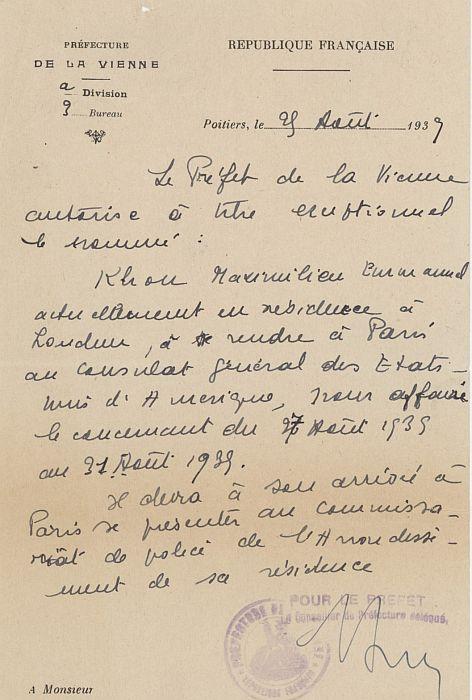 PRÉFECTURE
DE LA VIENNE
Division
3 Bureau
REPUBLIQUE FRANÇAISE
Poitiers, le 25 Août 1939
Le Préfet de la Vienne
autorise à titre exceptionnel
le nommé :
Khron Maximilien Emmanuel
actuellement en résidence à
Loudun, à se rendre à Paris
au consulat général des Etats-
unis d'Amérique, pour affaire
le concernant du 27 Août 1939
au 31 Août 1939.
Il devra à son arrivée à
Paris se présenter au commissa-
riat de police de l'Arrondissi-
ment de sa résidence
POUR LE PREFET
Le Conseiller de Préfecture délégué,
A Monsieur